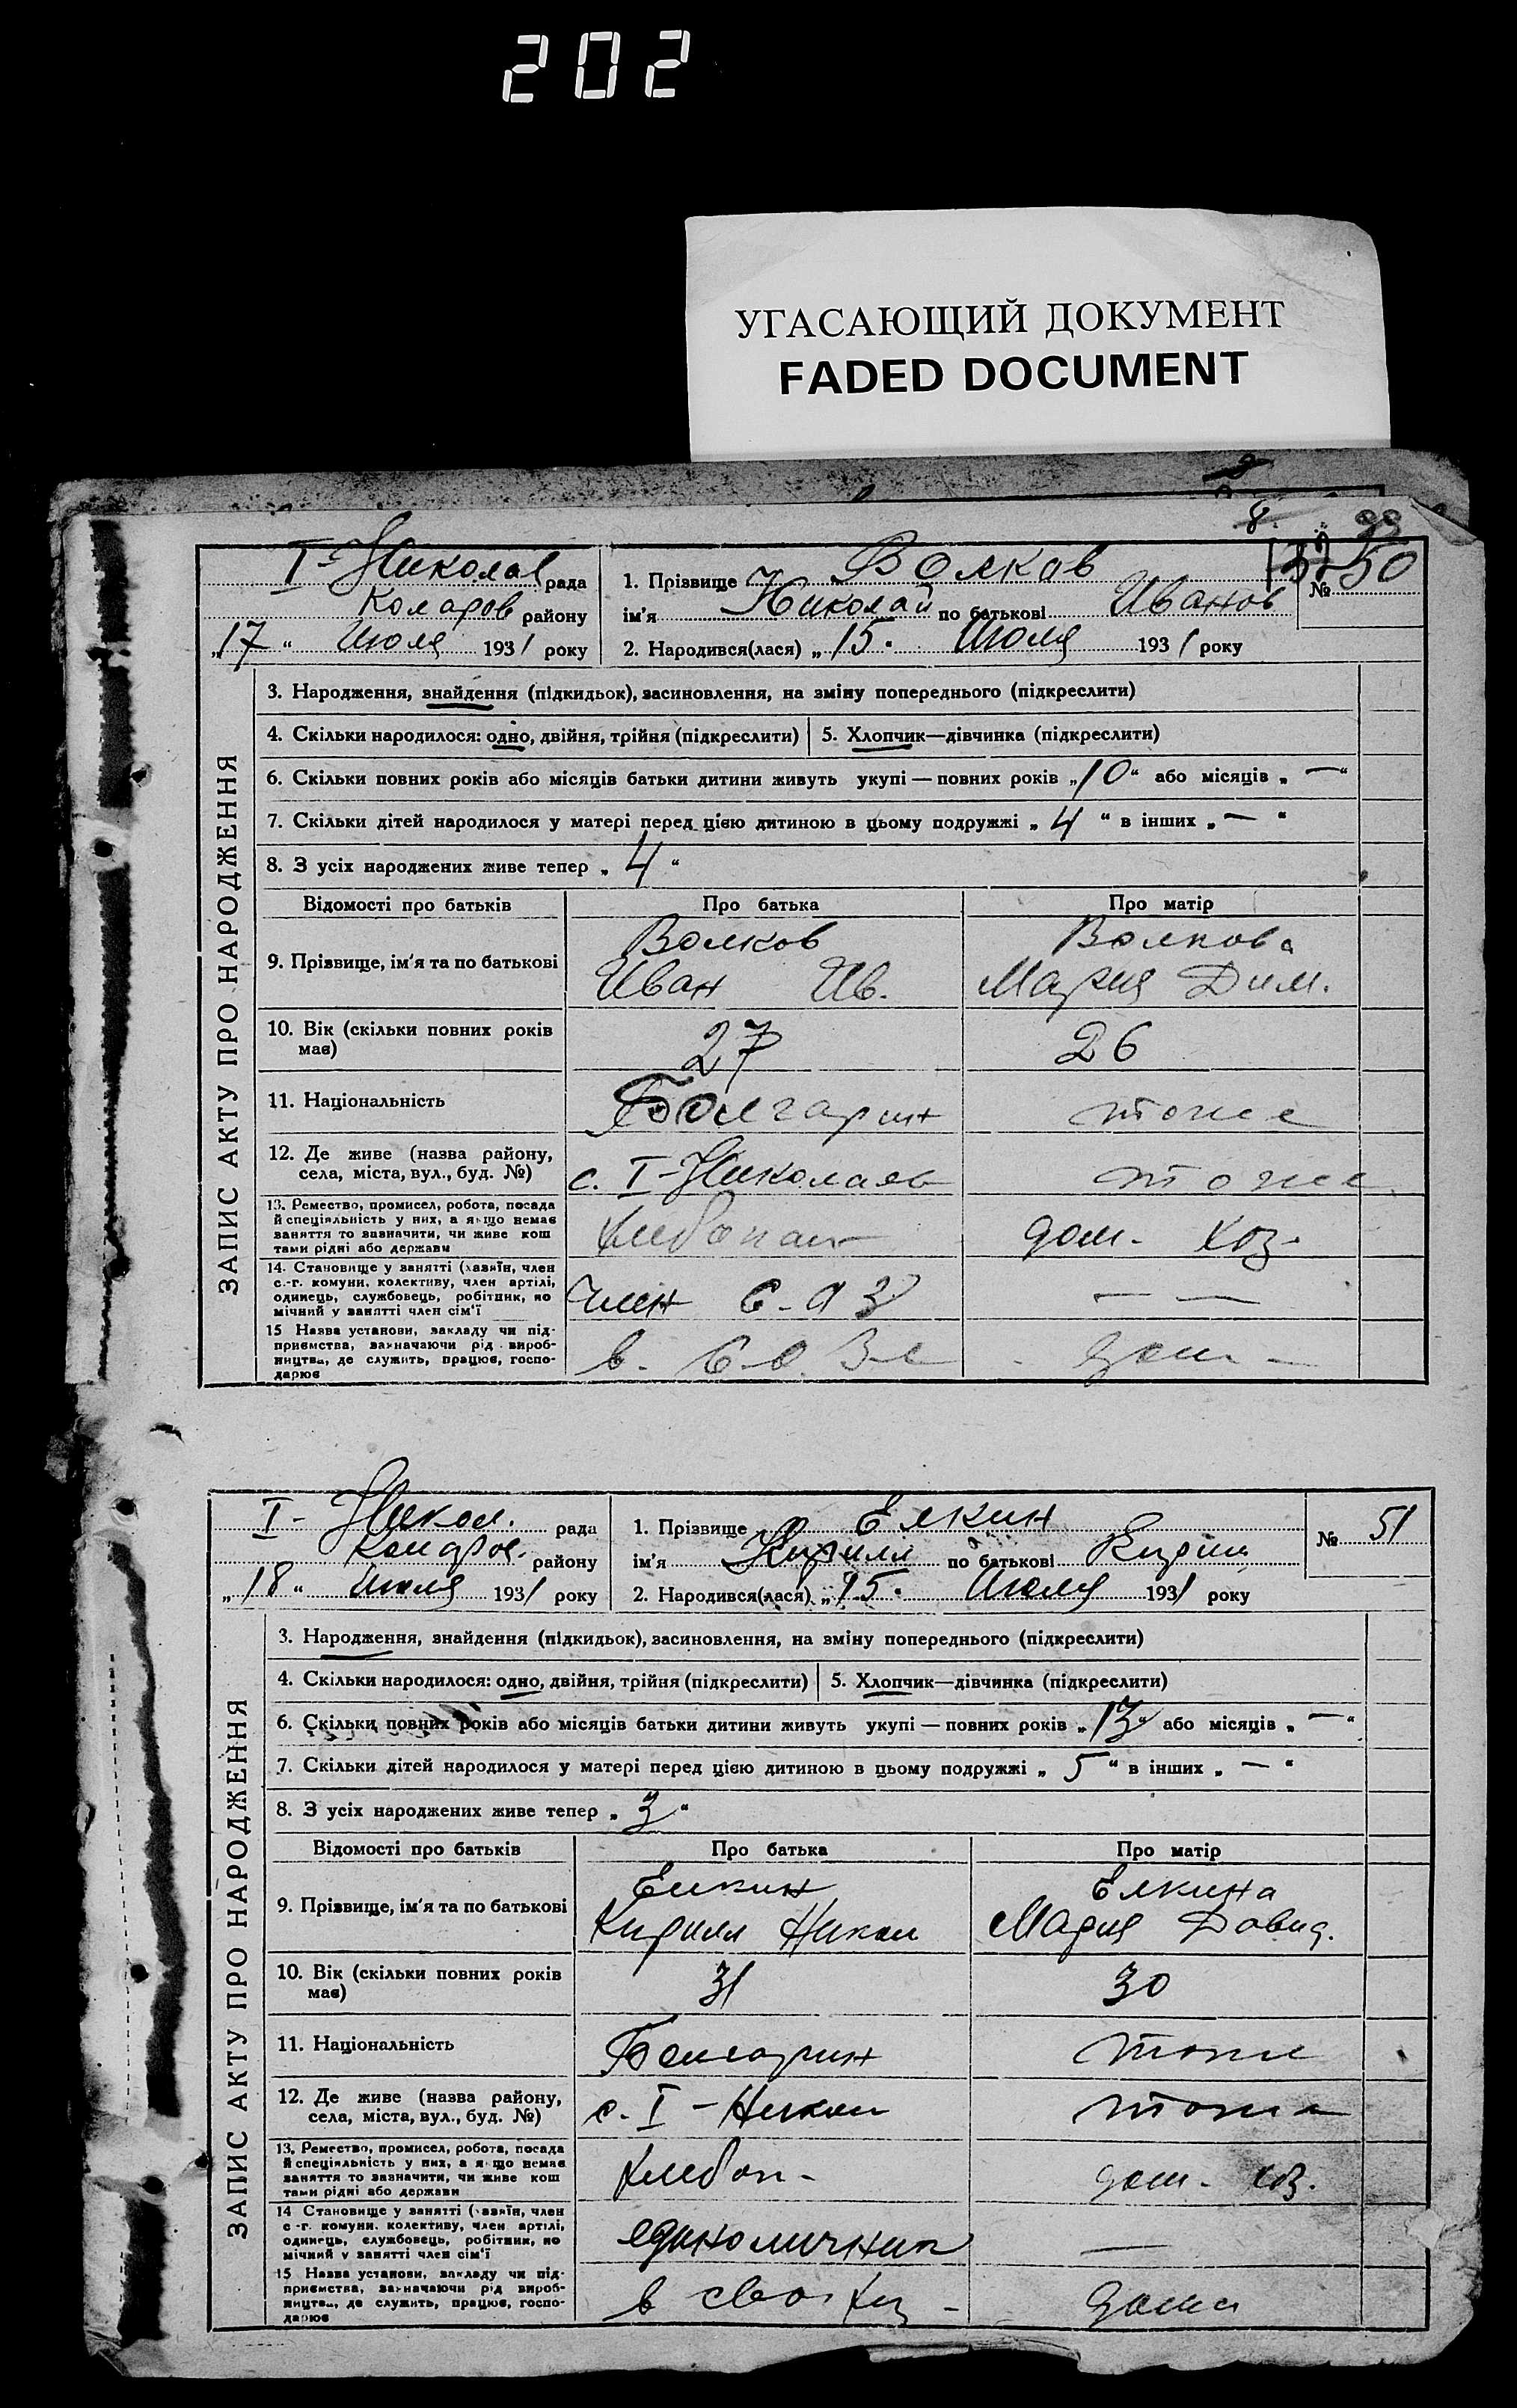 202
УГАСАЮЩИЙ ДОКУМЕНТ
FADED DOCUMENT
8
99
І-Николаев рада
Коларов району
„17“ Июля 1931 року
1. Прізвище Волков
№ 50
ім'я Николай по батькові Иванов
2. Народився(лася) „15. Июля 1931 року
ЗАПИС АКТУ ПРО НАРОДЖЕННЯ
3. Народження, знайдення (підкидьок), засиновлення, на зміну попереднього (підкреслити)
4. Скільки народилося: одно, двійня, трійня (підкреслити)
5. Хлопчик—дівчинка (підкреслити)
6. Скільки повних років або місяців батьки дитини живуть укупі — повних років „10“ або місяців „—“
7. Скільки дітей народилося у матері перед цією дитиною в цьому подружжі „4“ в інших „—“
8. З усіх народжених живе тепер „4“
Відомості про батьків
Про батька
Про матір
9. Прізвище, ім'я та по батькові
Волков
Иван Ив.
Волкова
Мария Дим.
10. Вік (скільки повних років
має)
27
26
11. Національність
Болгарин
тоже
12. Де живе (назва району,
села, міста, вул., буд. №)
с. І-Николаев
тоже
13. Ремество, промисел, робота, посада
й спеціяльність у них, а якщо немає
заняття то зазначити, чи живе кош
тами рідні або держави
дом. хоз.
14. Становище у занятті (хазяїн, член
с.-г. комуни, колективу, член артілі,
одинець, службовець, робітник, по
мічний у занятті член сім'ї
член
— —
15 Назва установи, закладу чи під-
приємства, зазначаючи рід вироб-
ництва, де служить, працює, госпо-
дарює
в
І- Никол. рада
району
„18“ Июля 1931 року
1. Прізвище Елкин
№ 51
ім'я Кирилл по батькові Кирил
2. Народився(лася) „15. Июля 1931 року
ЗАПИС АКТУ ПРО НАРОДЖЕННЯ
3. Народження, знайдення (підкидьок), засиновлення, на зміну попереднього (підкреслити)
4. Скільки народилося: одно, двійня, трійня (підкреслити)
5. Хлопчик—дівчинка (підкреслити)
6. Скільки повних років або місяців батьки дитини живуть укупі — повних років „13“ або місяців „—“
7. Скільки дітей народилося у матері перед цією дитиною в цьому подружжі „5“ в інших „—“
8. З усіх народжених живе тепер „3“
Відомості про батьків
Про батька
Про матір
9. Прізвище, ім'я та по батькові
Елкин
Кирилл Никол
Елкина
Мария Давид.
10. Вік (скільки повних років
має)
31
30
11. Національність
Болгарин
тоже
12. Де живе (назва району,
села, міста, вул., буд. №)
с. І - Никол
тоже
13. Ремество, промисел, робота, посада
й спеціяльність у них, а якщо немає
заняття то зазначити, чи живе кош
тами рідні або держави
хлебоп-
дом. хоз.
14 Становище у занятті (хазяїн, член
с.-г. комуни, колективу, член артілі,
одинець, службовець, робітник, по
мічний у занятті член сім'ї
единоличник
—
15 Назва установи, закладу чи під-
приємства, зазначаючи рід вироб-
ництва, де служить, працює, госпо-
дарює
в
дома